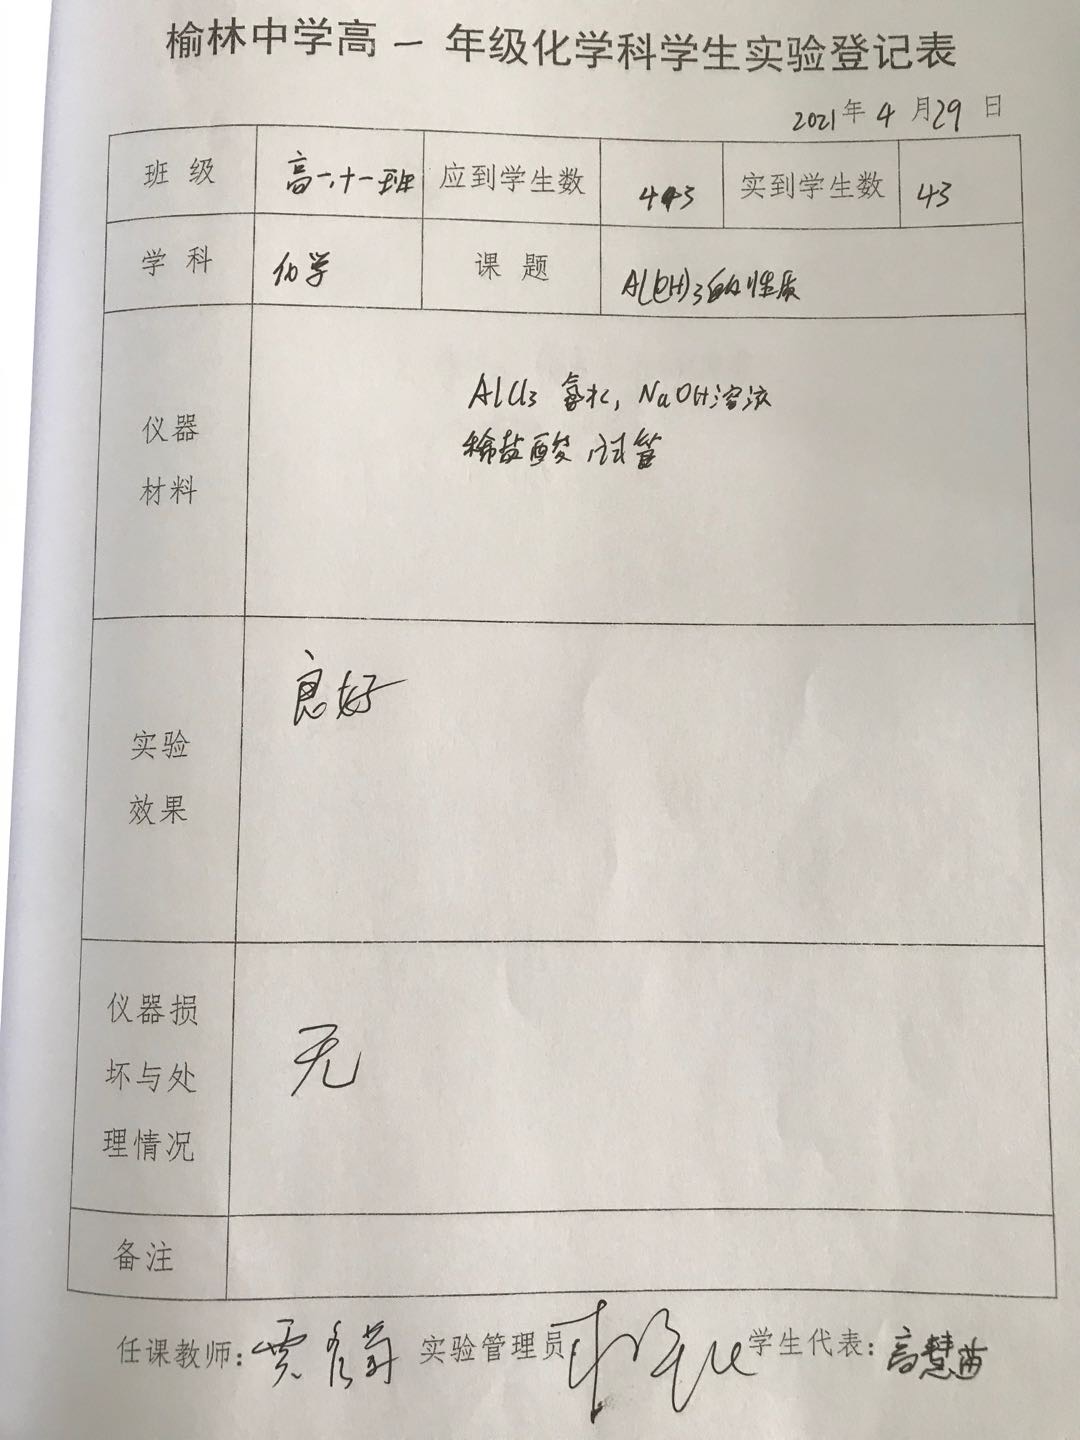 榆林中学高一年级化学科学生实验登记表
2021年4月29日
班级 高一、十一班 应到学生数 43 实到学生数 43
学科 化学 课题 Al(OH)3的性质
仪器
材料
AlCl3 氨水, NaOH溶液
稀盐酸 试管
实验
效果
良好
仪器损
坏与处
理情况
无
备注
任课教师: 实验管理员: 学生代表: 高慧苗